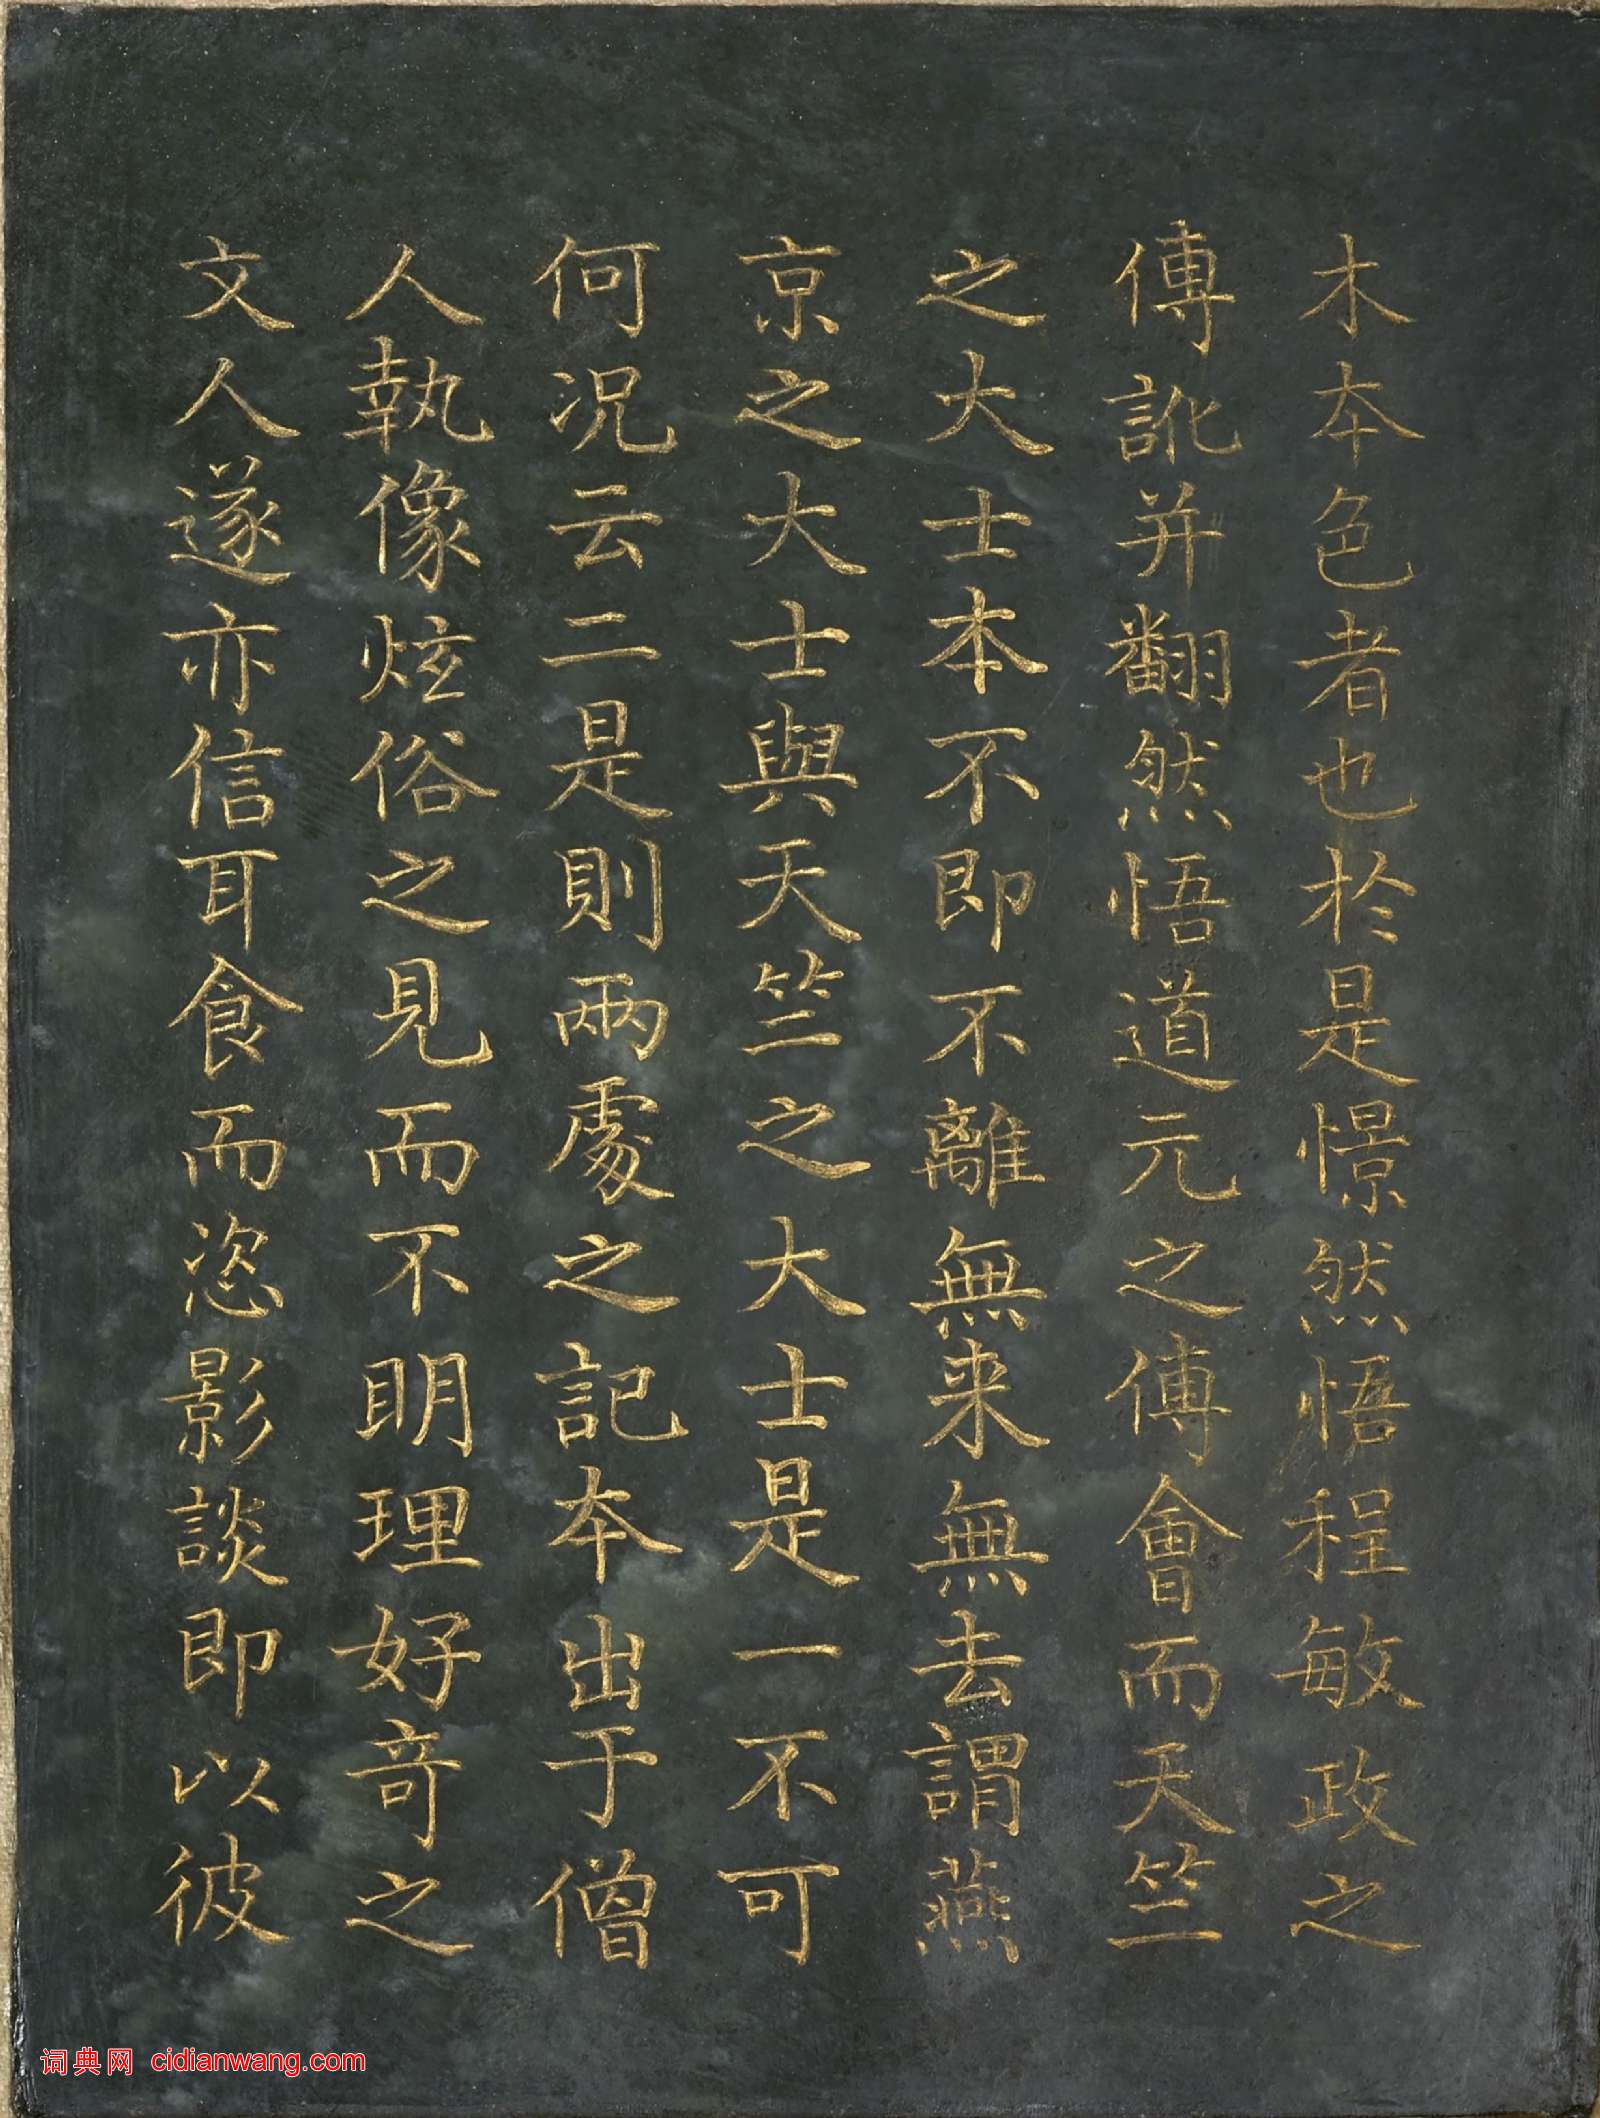 木本色者也於是憬然悟程敏政之
傅訛并翻然悟道元之傅會而天竺
之大士本不即不離無来無去謂燕
京之大士與天竺之大士是一不可
何况云二是則兩處之記本出于僧
人執像炫俗之見而不明理好奇之
文人遂亦信耳食而恣影談即以彼
词典网 cidianwang.com